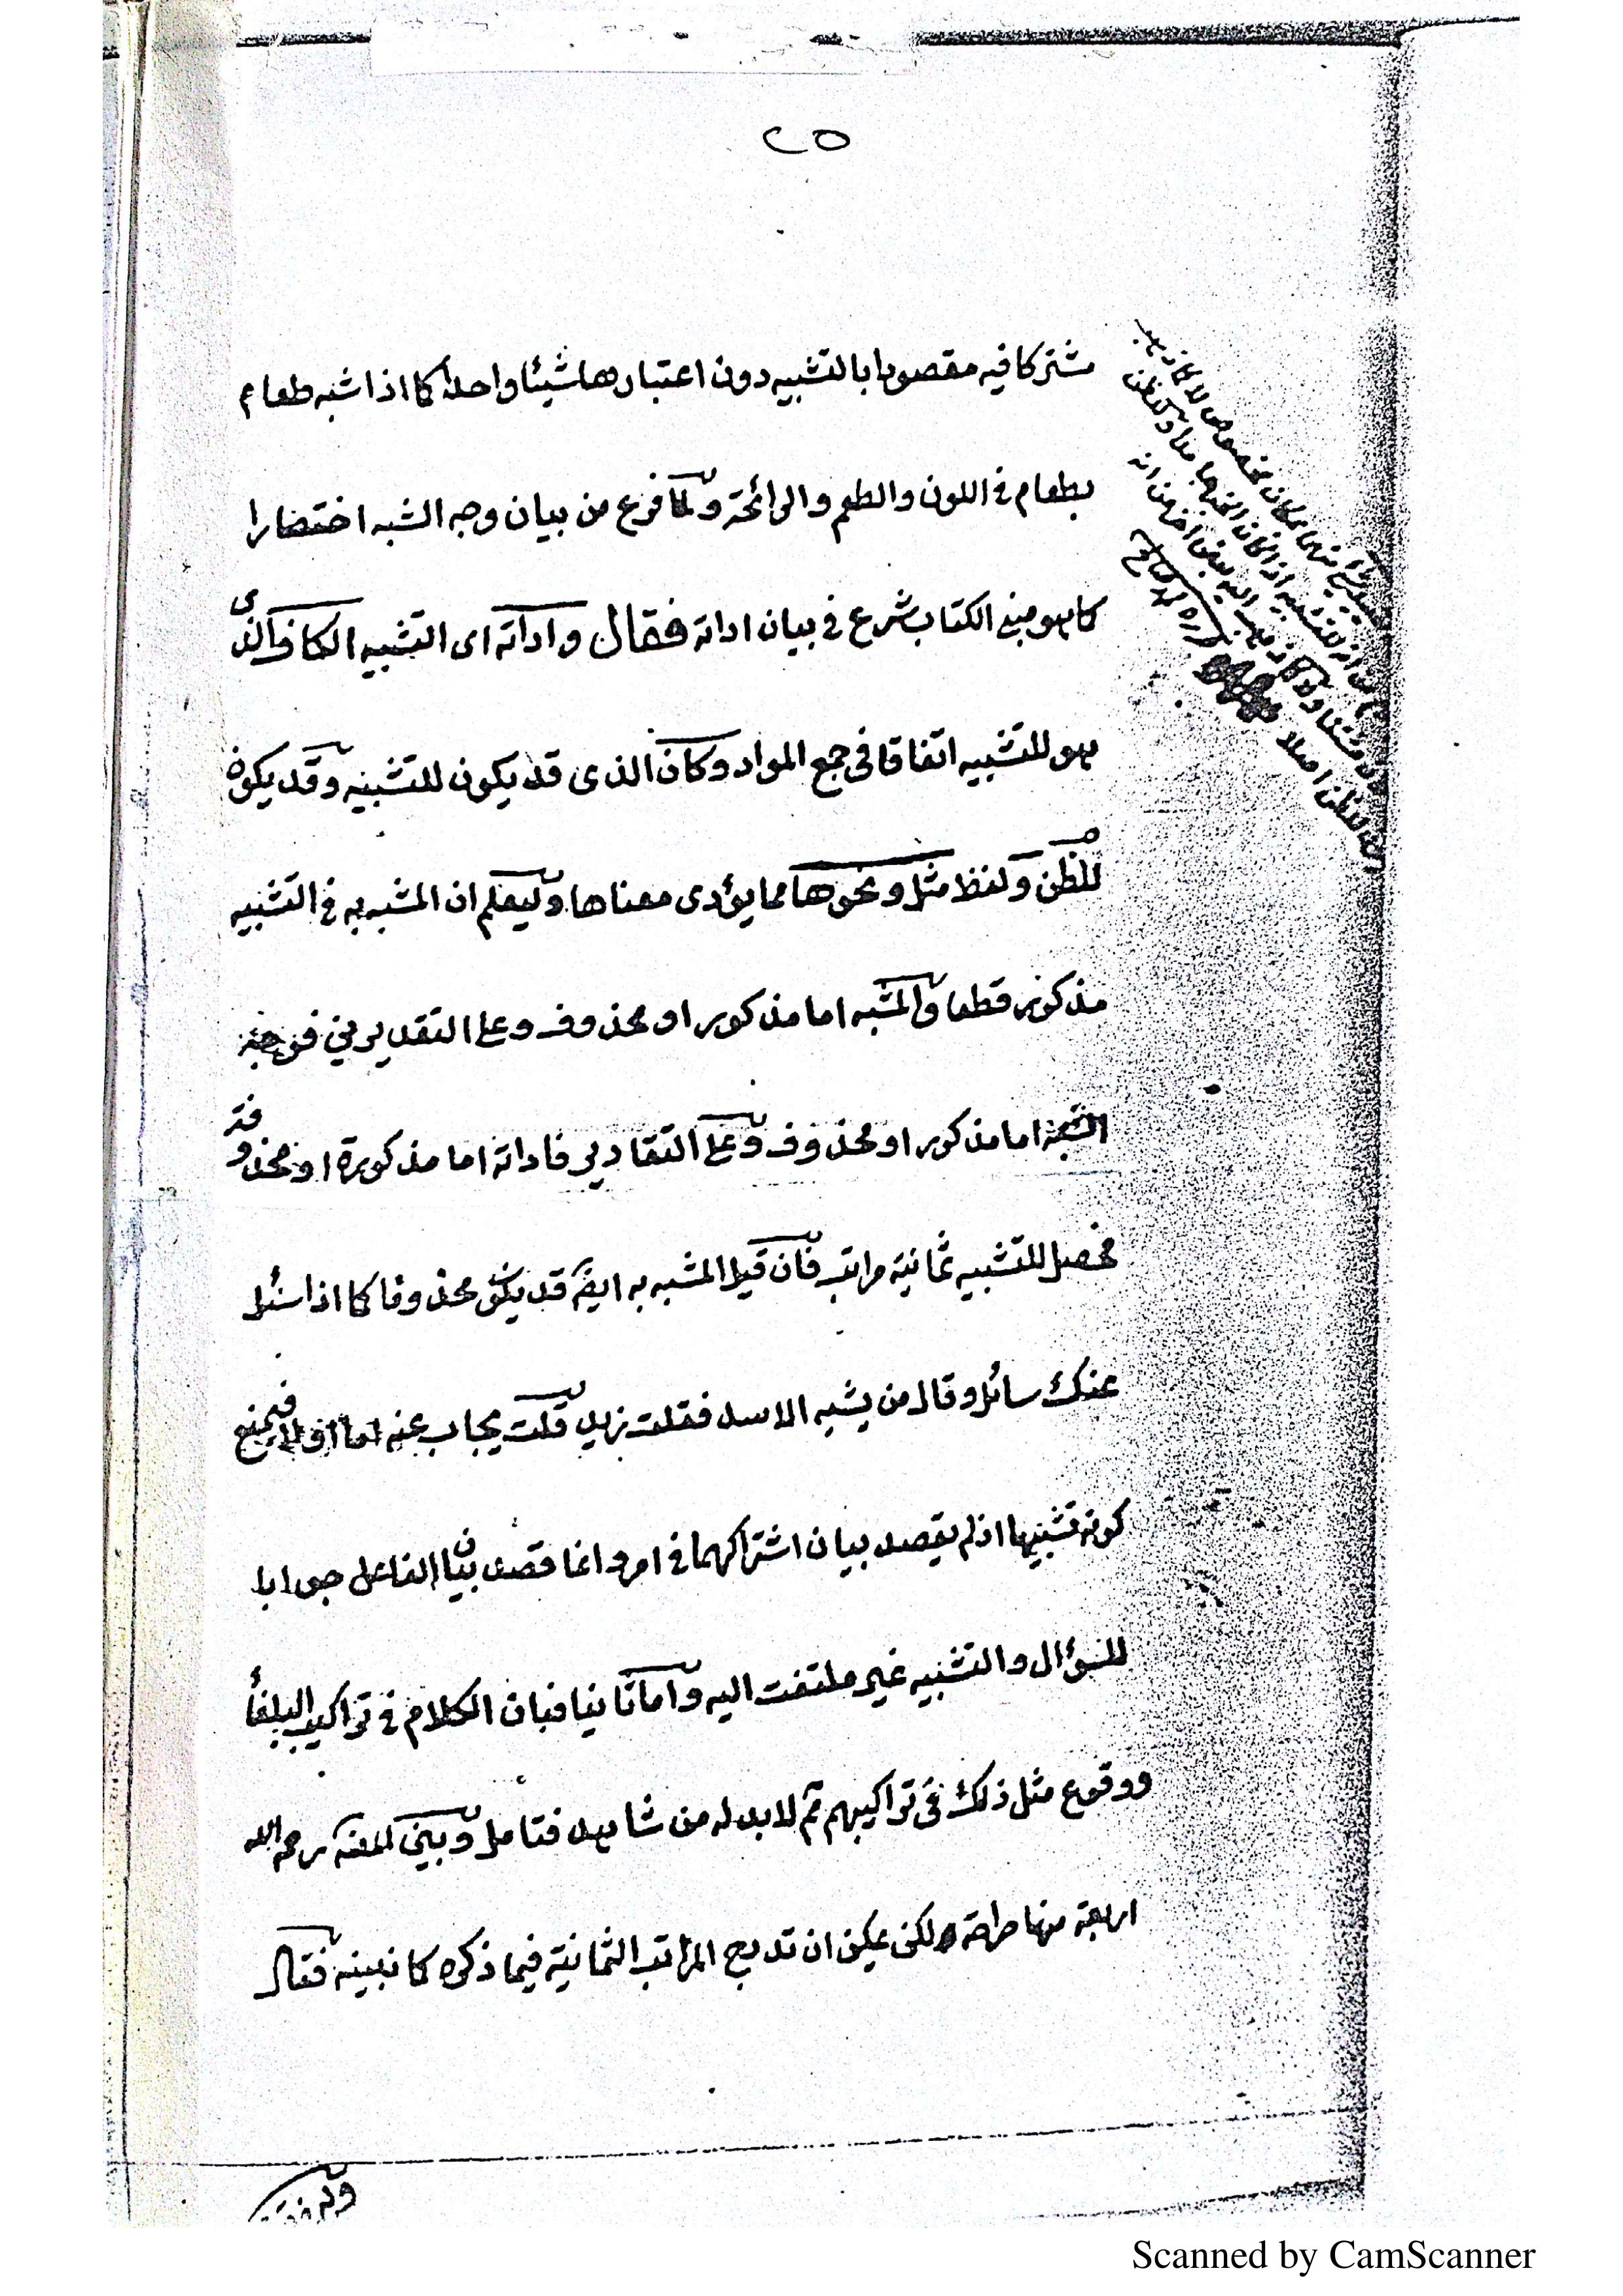 ٢٥
مشتركا فيه مقصودا بالتشبيه دون اعتبارها شيئا واحدا كما اذا شبه طعام
بطعام في اللون والطعم والرائحة ولما فرع من بيان وجه الشبه اختصارا
كما هو مبنى الكتاب شرع في بيان اداته فقال واداته اى التشبيه الكاف الذى
هو للتشبيه اتفاقا فى جمع المواد وكان الذى قد يكون للتشبيه وقد يكون
للظن ولفظ مثل ونحوها مما يؤدى معناها وليعلم ان المشبه به في التشبيه
مذكور قطعا والمشبه اما مذكور او محذوف وعلى التقديرين فوجه
الشبه اما مذكور او محذوف وعلى التقادير فاداته اما مذكورة او محذوفة
فحصل للتشبيه ثمانية مراتب فان قيل المشبه به ايضً قد يكون محذوفا كما اذا سئل
عنك سائل وقال من يشبه الاسد فقلت زيد قلت يجاب عنه اما اولا فيمنع
كونه تشبيها اذ لم يقصد بيان اشتراكهما في امر وانما قصد بيان الفاعل جوابا
للسؤال والتشبيه غير ملتفت اليه واما ثانيا فبان الكلام في تراكيب البلغأ
ووقوع مثل ذلك فى تراكيبهم ثم لا بد له من شاهد فتامل وبين المص رحمه الله
اربعة منها صراحة ولكن يمكن ان تدرج المراتب الثمانية فيما ذكره كما نبينه فقال
Scanned by CamScanner